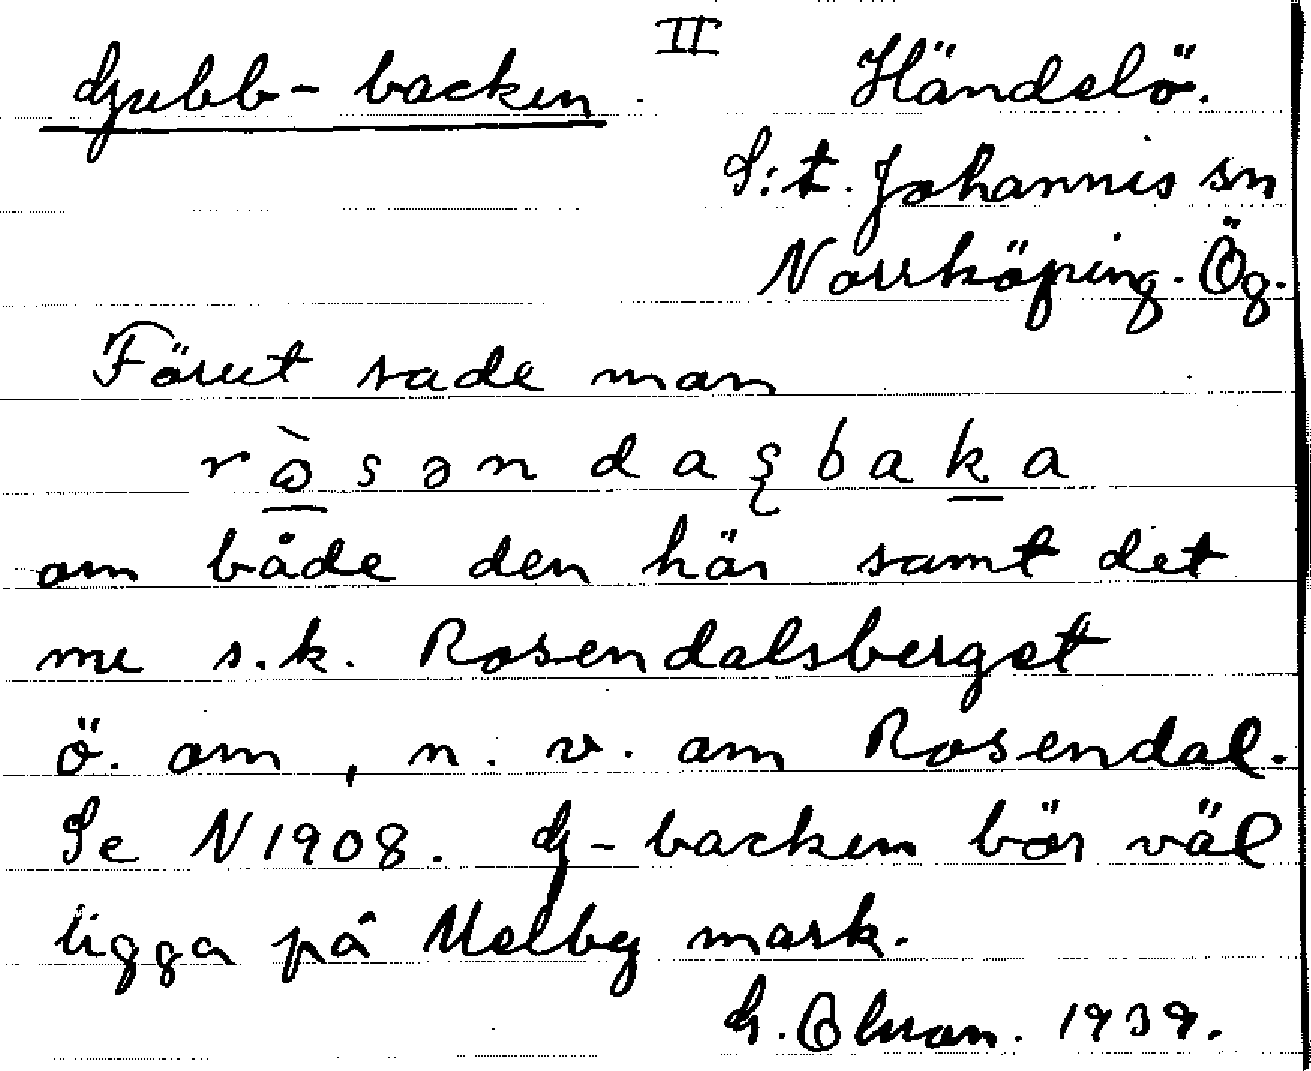 II
Gubb-backen Händelö.
S:t. Johannis sn
Norrköping. Ög.
Förut sade man
om både den här samt det
nu s.k. Rosendalsberget
ö. om, n. v. om Rosendal.
Se N1908. G-backen bör väl
ligga på Melby mark.
G. 1939.